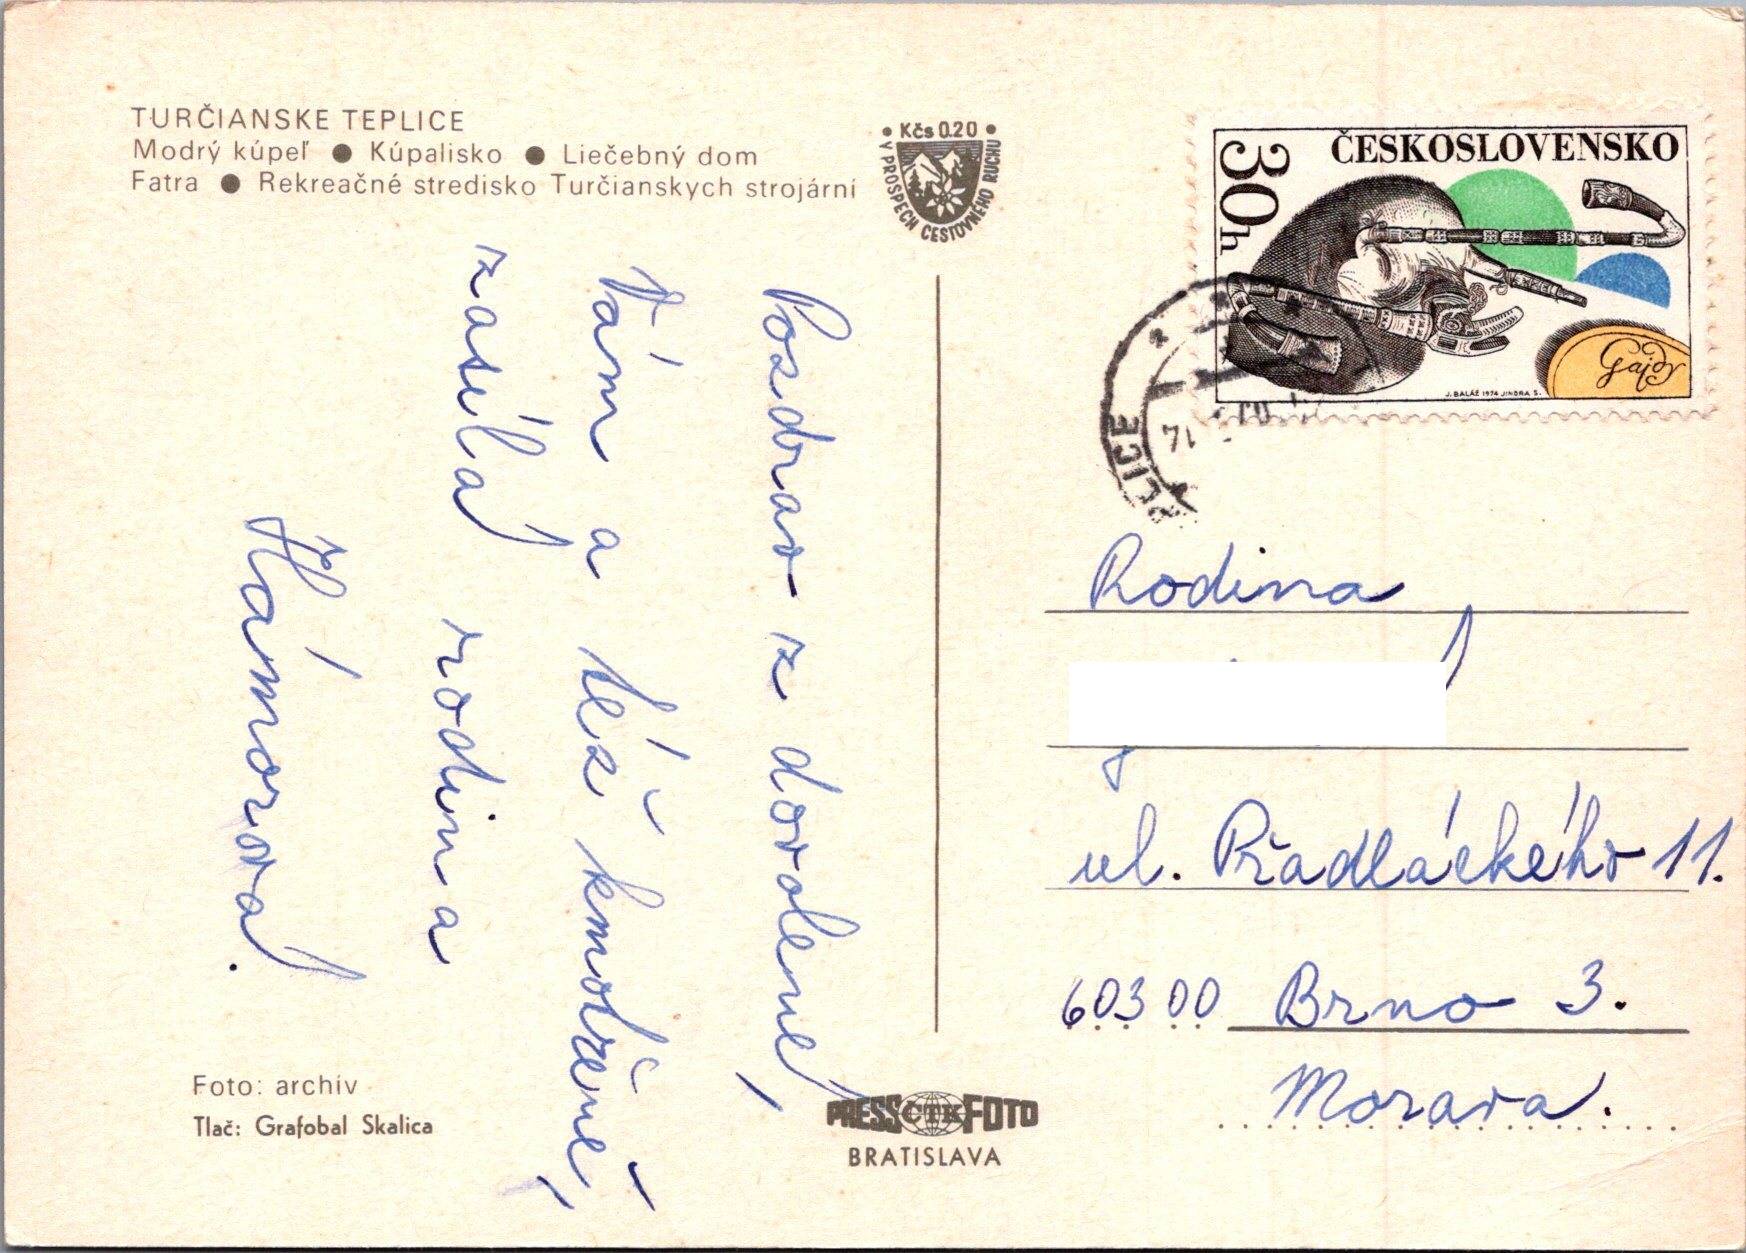 TURČIANSKE TEPLICE
Modrý kúpeľ ● Kúpalisko ● Liečebný dom
Fatra ● Rekreačné stredisko Turčianskych strojární
• Kčs 0.20 •
V PROSPECH CESTOVNÉHO RUCHU
ČESKOSLOVENSKO
30h
Gajdy
J. BALÁŽ 1974 JINDRA S.
LICE
Pozdrav z dovolené,
Vám a též kmotřeně,
zasílá rodina
Hámorova.
Rodina
ul. Přadláckého 11.
603 00 Brno 3.
Morava.
Foto: archív
Tlač: Grafobal Skalica
PRESS ČTK FOTO
BRATISLAVA